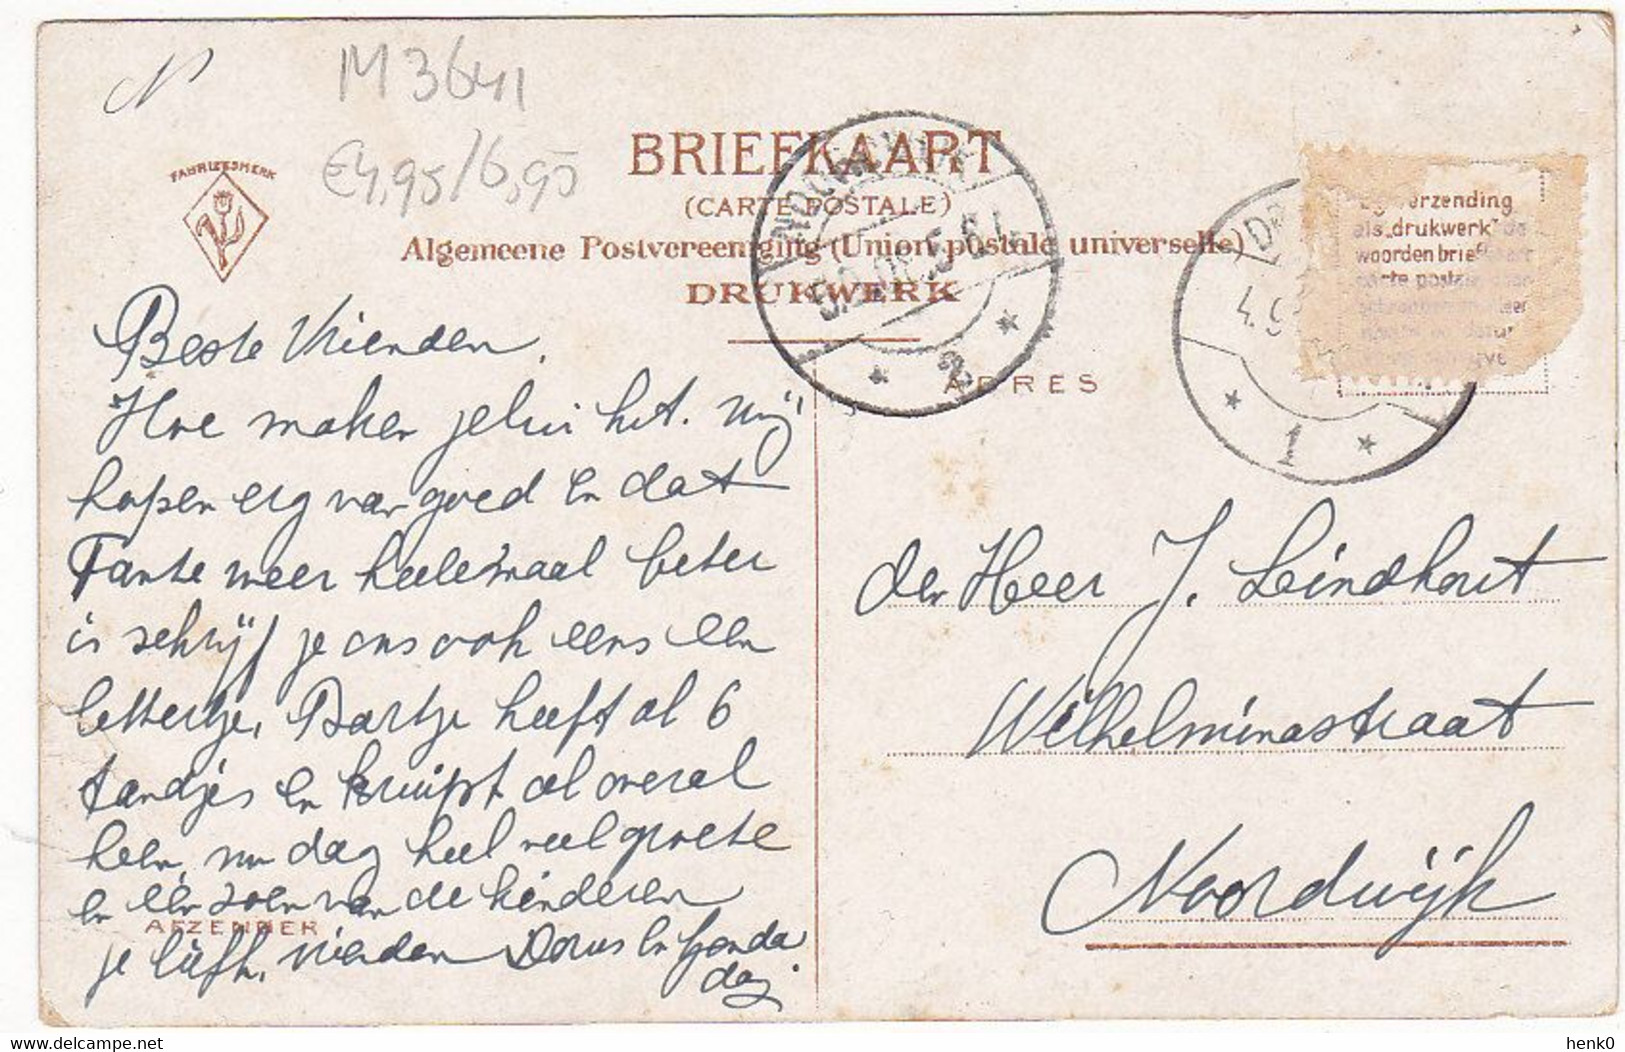 M 3641
€4,95/6,95
FABRIEKSMERK
BRIEFKAART
(CARTE POSTALE)
Algemeene Postvereeniging (Union postale universelle)
DRUKWERK
ADRES
verzending
als „drukwerk" de
woorden brief
carte postale
2
1
4.9
Beste Vrienden.
Hoe maken jelui het. wij
hopen erg van goed en dat
Tante weer heelemaal beter
is schrijf je ons ook eens een
lettertje. Bartje heeft al 6
tandjes en kruipt al overal
heen, nu dag heel veel groete
en één zoen van de kinderen
je liefh. vrienden Dorus en
dag.
AFZENDER
den Heer J. Leindhout
Wilhelminastraat
Noordwijk
delcampe.net
henk0